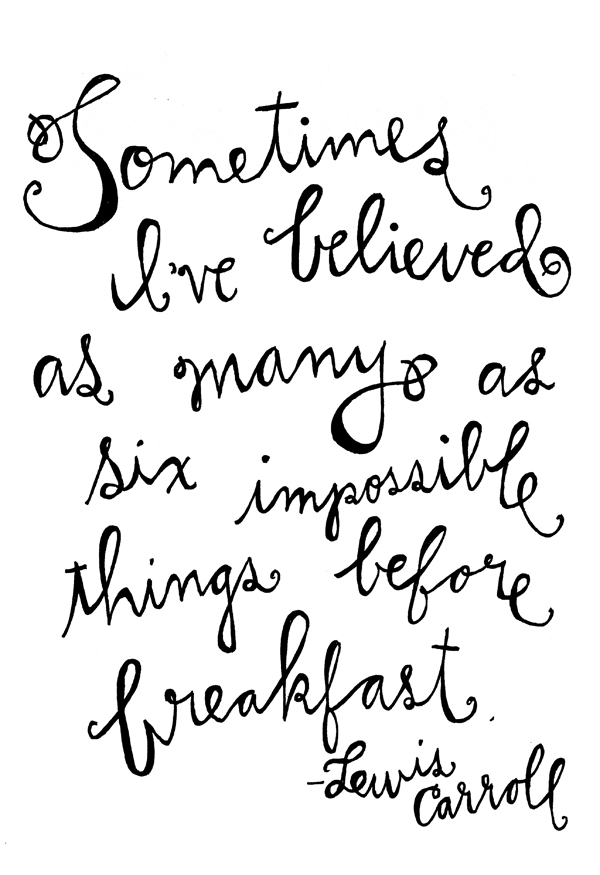 Sometimes
I've believed
as many as
six impossible
things before
breakfast.
-Lewis
Carroll